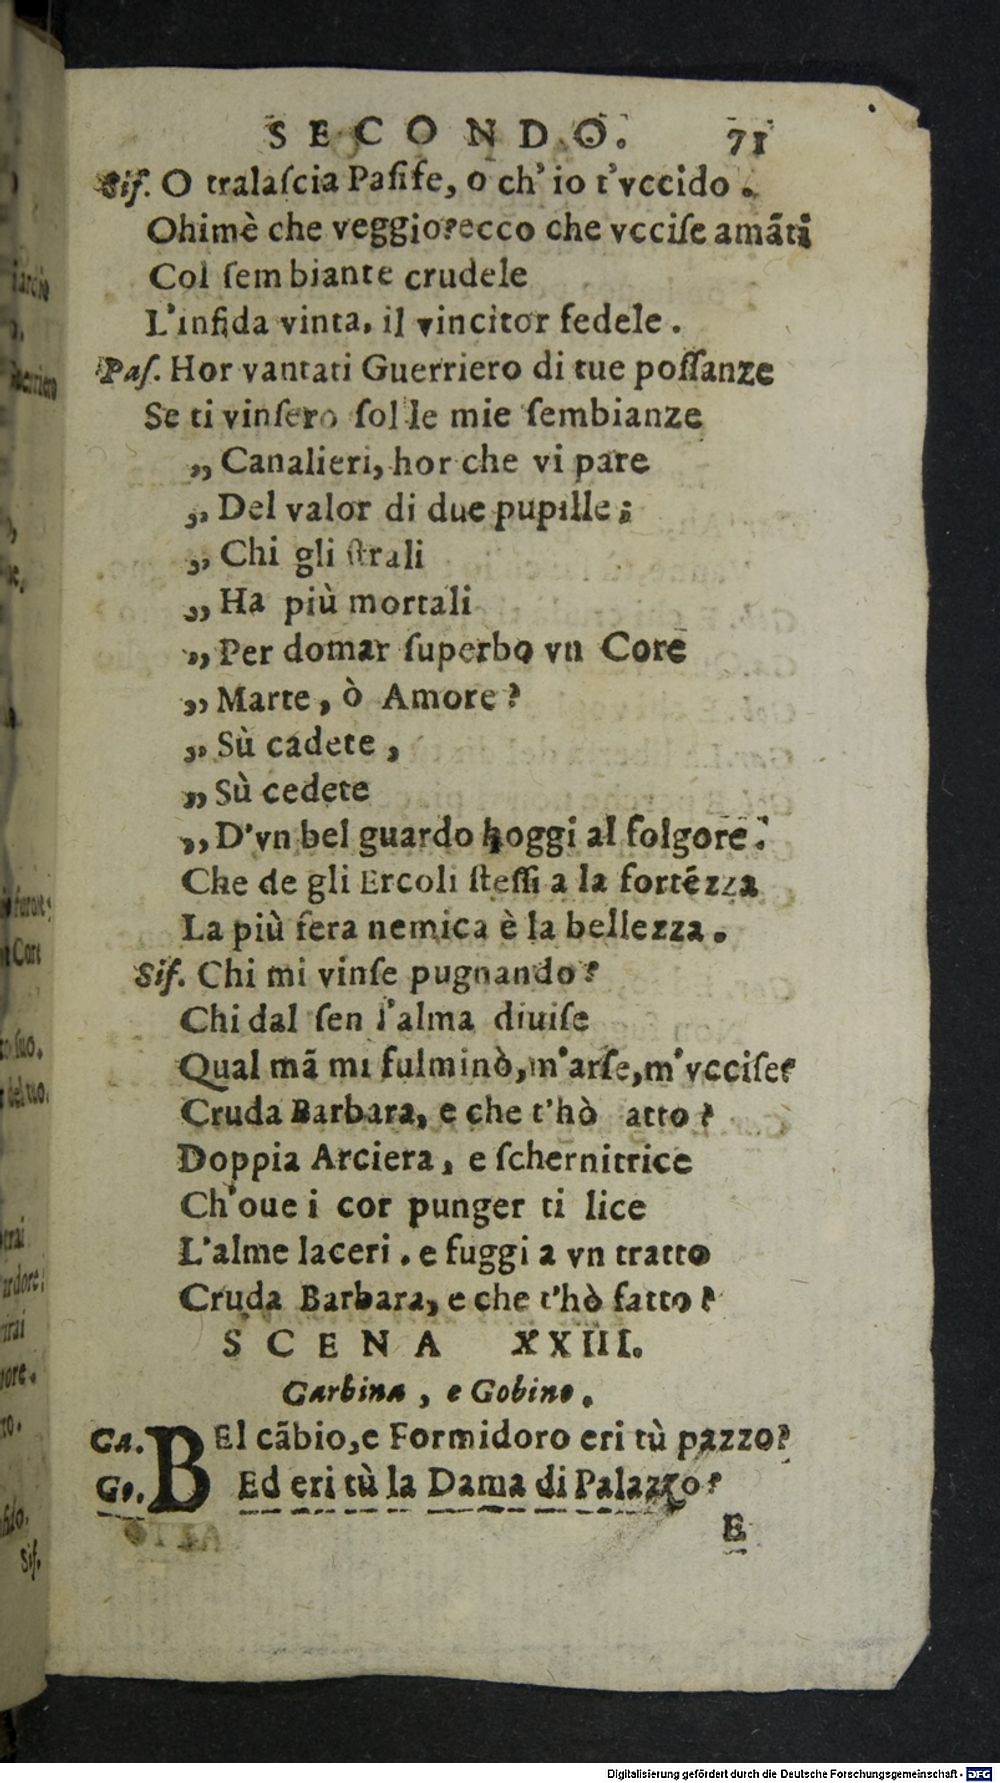 SECONDO. 71
Sif. O tralaſcia Paſife, o ch' io t'vccido.
Ohimè che veggio?ecco che vcciſe amãti
Col ſem biante crudele
L'infida vinta, il vincitor fedele.
Paſ. Hor vantati Guerriero di tue poſſanze
Se ti vinſero ſol le mie ſembianze
,, Canalieri, hor che vi pare
,, Del valor di due pupille;
,, Chi gli ſtrali
,, Ha più mortali
,, Per domar ſuperbo vn Core
,, Marte, ò Amore?
,, Sù cadete,
,, Sù cedete
,, D'vn bel guardo hoggi al folgore.
Che de gli Ercoli ſteſſi a la fortezza
La più fera nemica è la bellezza.
Sif. Chi mi vinſe pugnando?
Chi dal ſen l'alma diuiſe
Qual mã mi fulminò,m'arſe,m'vcciſe?
Cruda Barbara, e che t'hò atto?
Doppia Arciera, e ſchernitrice
Ch'oue i cor punger ti lice
L'alme laceri. e fuggi a vn tratto
Cruda Barbara, e che t'hò fatto?
SCENA XXIII.
Garbina, e Gobino.
Ga. BEl cãbio,e Formidoro eri tù pazzo?
Go. Ed eri tù la Dama di Palazzo?
E
ſuo.
Sif.
Digitalisierung gefördert durch die Deutsche Forschungsgemeinschaft - DFG